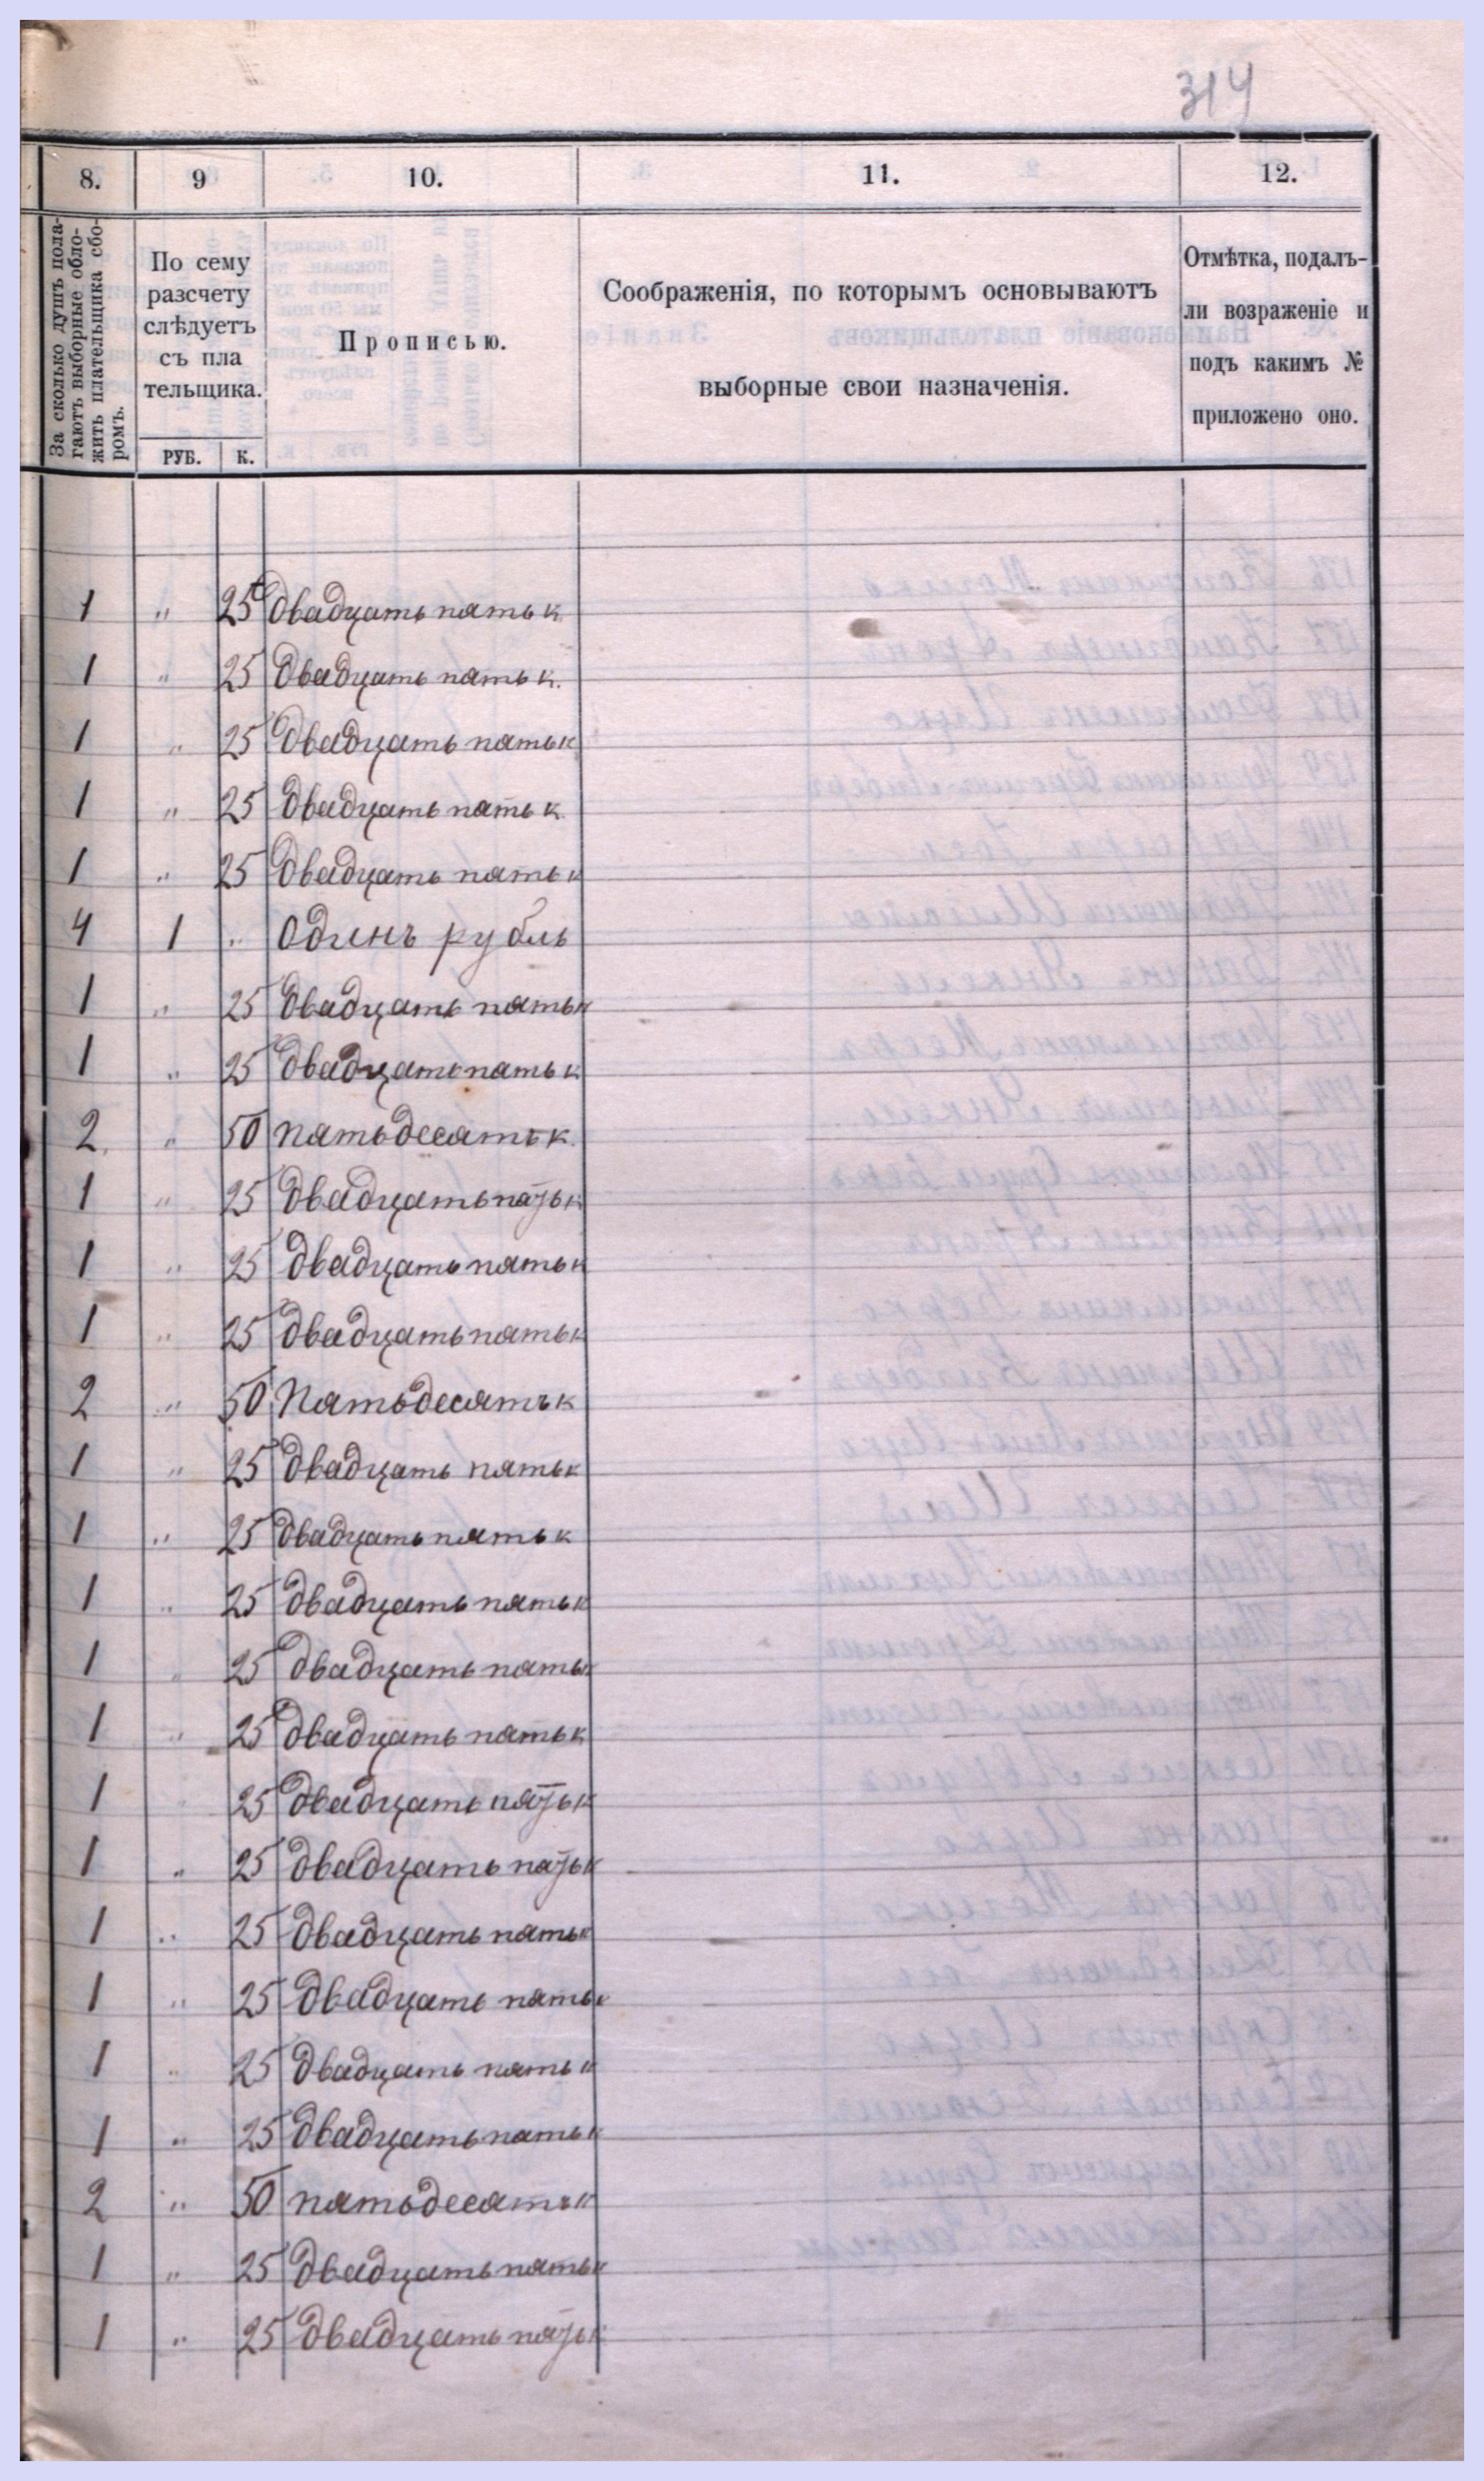 314
8. 9 10. 11. 12.
За сколько душъ пола-
гаютъ выборные обло-
жить плательщика сбо-
ромъ.
По сему
разсчету
слѣдуетъ
съ пла
тельщика.
РУБ. К.
Прописью.
Соображенія, по которымъ основываютъ
выборные свои назначенія.
Отмѣтка, подалъ-
ли возраженіе и
подъ какимъ №
приложено оно.
1 " 25 Двадцать пять к
1 " 25 Двадцать пять к.
1 " 25 Двадцать пять к
1 " 25 Двадцать пять к
1 " 25 Двадцать пять к
4 1 " Одинъ рубль
1 " 25 Двадцать пять к
1 " 25 Двадцать пять к
2 " 50 Пятьдесятъ к.
1 " 25 Двадцать пять к
1 " 25 Двадцать пять к
1 " 25 Двадцать пять к
2 " 50 Пятьдесятъ к
1 " 25 Двадцать пять к
1 " 25 Двадцать пять к
1 " 25 Двадцать пять к
1 " 25 Двадцать пять к
1 " 25 Двадцать пять к
1 " 25 Двадцать пять к
1 " 25 Двадцать пять к
1 " 25 Двадцать пять к
1 " 25 Двадцать пять к
1 " 25 Двадцать пять к
1 " 25 Двадцать пять к
2 " 50 пятьдесятъ к
1 " 25 Двадцать пять к
1 " 25 Двадцать пять к